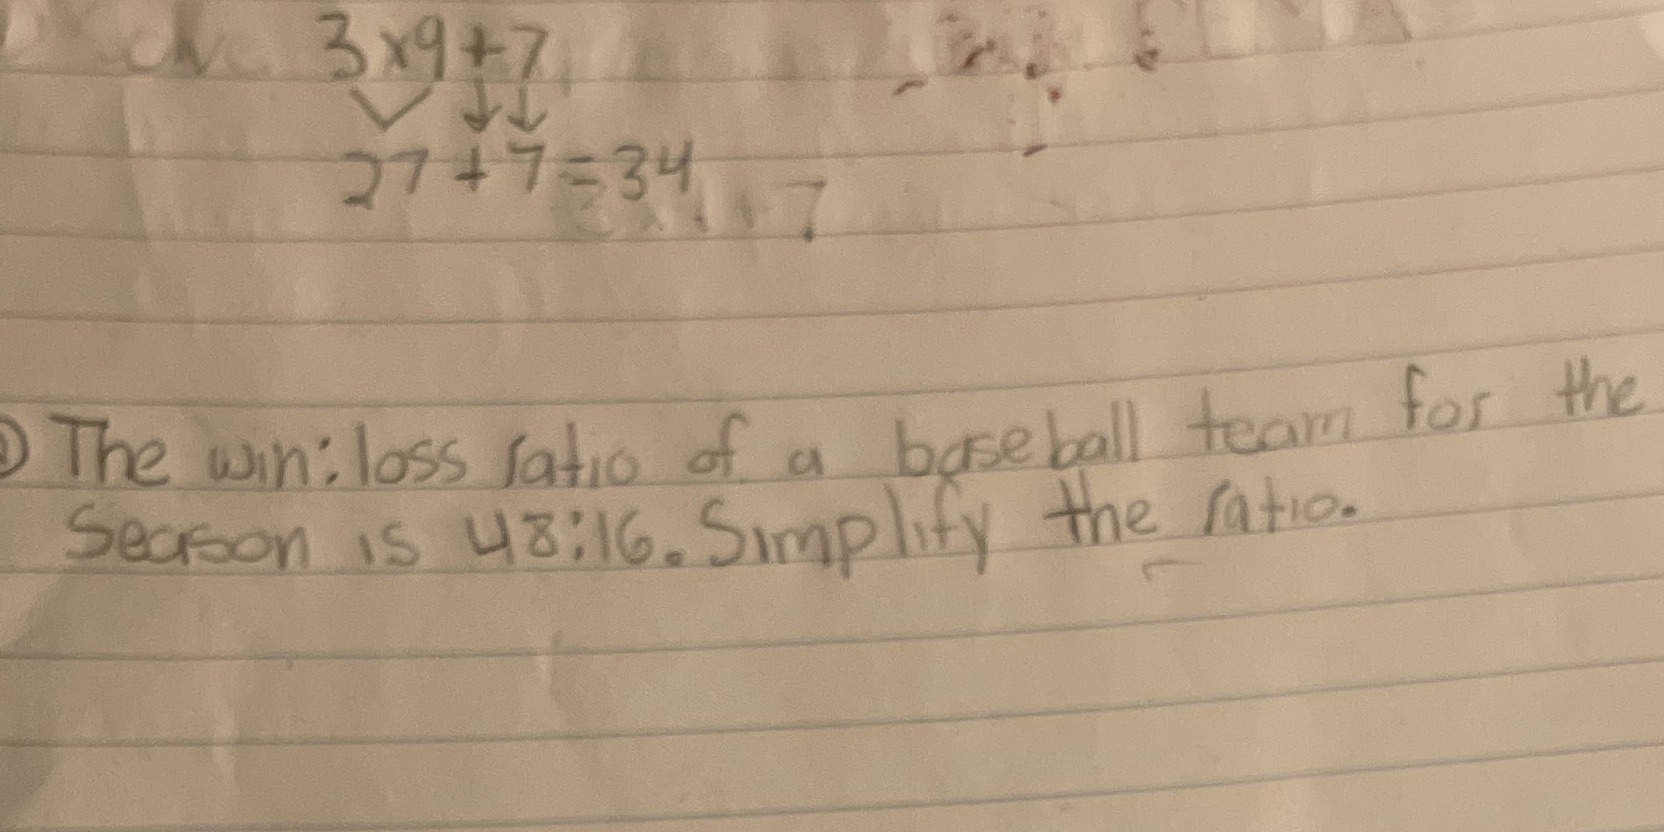 3x9+7
27+7=34
7
The win:loss ratio of a baseball team for the
Season is 48:16. Simplify the ratio.